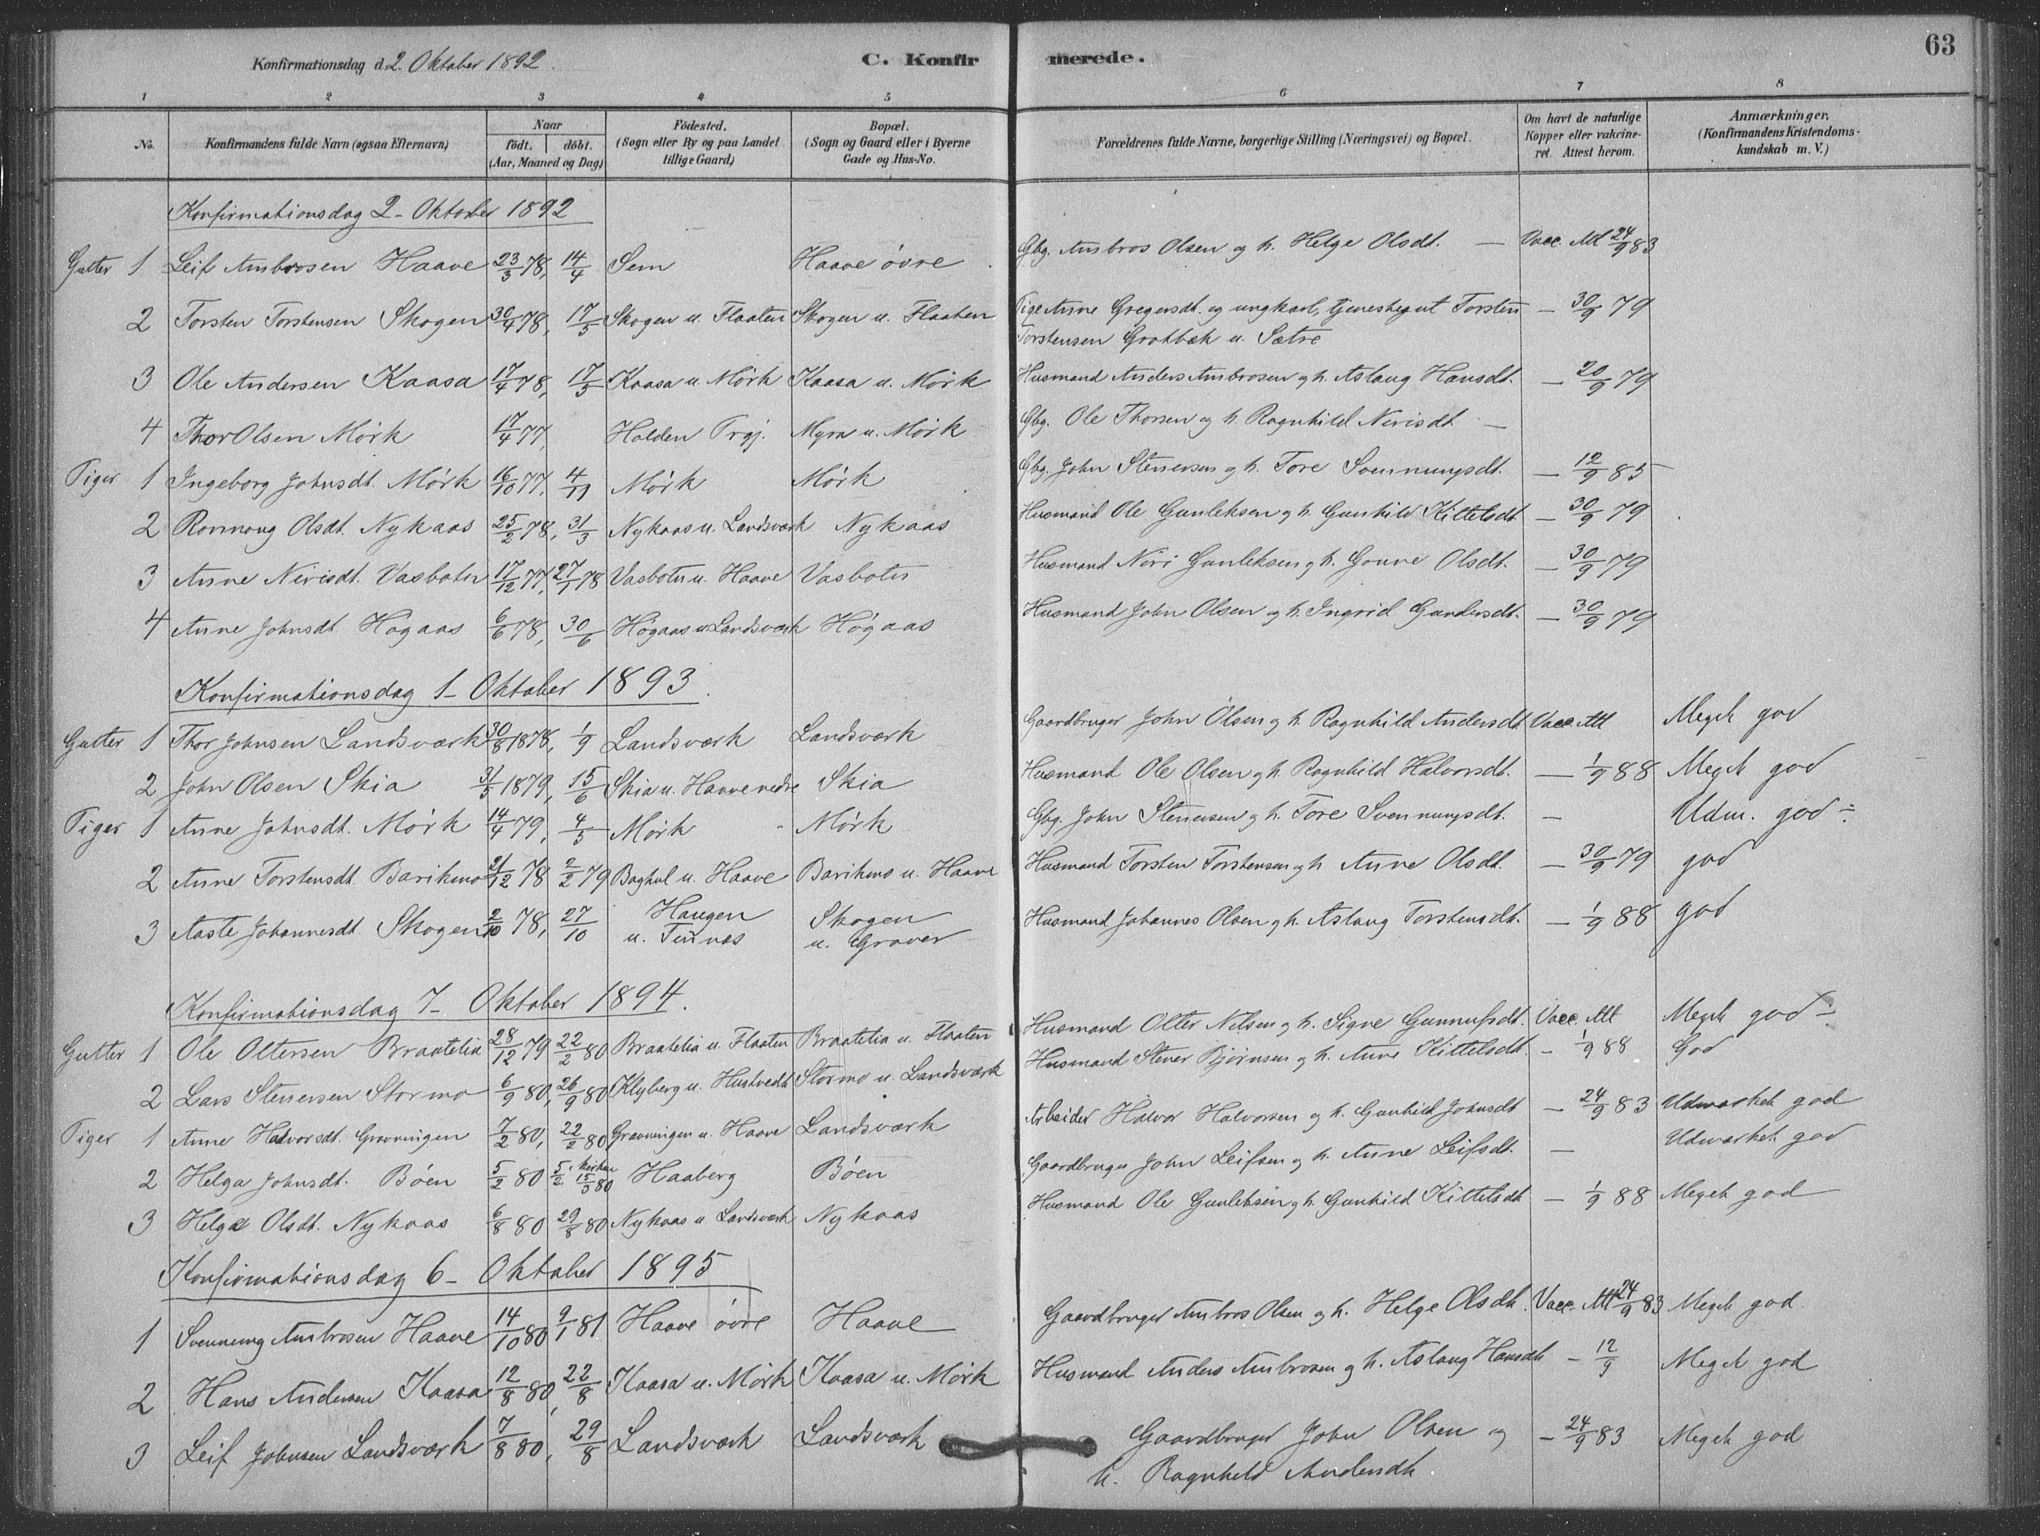 63
Konfirmationsdag d. 2. Oktober 1892.
C. Konfirmerede.
1 2 3 4 5 6 7 8
No.
Konfirmandens fulde Navn (ogsaa Efternavn)
Naar
født. døbt.
(Aar, Maaned og Dag)
Fødested.
(Sogn eller By og paa Landet
tillige Gaard)
Bopæl.
(Sogn og Gaard eller i Byerne
Gade og Hus-No.
Forældrenes fulde Navne, borgerlige Stilling (Næringsvei) og Bopæl.
Om havt de naturlige
Kopper eller vakcine-
ret. Attest herom.
Anmærkninger.
(Konfirmandens Kristendoms-
kundskab m. V.)
Konfirmationsdag 2 - Oktober 1892
Gutter 1 Leif Ambrosen Haave 23/3 78, 14/4 Sem Haave øvre Gbg. Ambros Olsen og h. Helge Olsdt. — Vacc. Att 24/9 83
2 Torsten Torstensen Skogen 30/4 78, 17/5 Skogen u. Flaaten Skogen u. Flaaten Pige Anne Gregersdt. og ungkarl, tjenestegut Torsten — 30/9 79
Torstensen Grotbæk u. Sætre
3 Ole Andersen Kaasa 17/4 78, 17/5 Kaasa u. Mørk Kaasa u. Mørk Husmand Anders Ambrosen og h. Aslaug Hansdt. — 20/9 79
4 Thor Olsen Mørk 17/4 77, Holden Prgj. Myra u. Mørk Gbg. Ole Thorsen og h. Ragnhild Nirisdt —
Piger 1 Ingeborg Johnsdt. Mørk 16/10 77, 4/11 Mørk Mørk Gbg. John Stenersen og h. Tore Svennungsdt. — 12/9 85
2 Ronnoug Olsdt. Nykaas 25/2 78, 31/3 Nykaas u. Landsværk Nykaas Husmand Ole Gunleksen og h. Gunhild Kittelsdt — 30/9 79
3 Anne Nirisdt. Vasbotn 17/12 77, 27/1 78 Vasbotn u. Haave Vasbotn Husmand Niri Gunleksen og h. Gonne Olsdt. — 30/9 79
4 Anne Johnsdt. Høgaas 6/6 78, 30/6 Høgaas u. Landsværk Høgaas Husmand John Olsen og h. Ingrid Gundersdt. — 30/9 79
Konfirmationsdag 1 - Oktober 1893.
Gutter 1 Thor Johnsen Landsværk 30/8 1878, 1/9 Landsværk Landsværk Gaardbruger John Olsen og h. Ragnhild Andersdt. Vacc. Att Meget god
2 John Olsen Skia 31/5 1879, 15/6 Skia u. Haave nedre Skia Husmand Ole Olsen og h. Ragnhild Halvorsdt. — 1/9 88 Meget god
Piger 1 Anne Johnsdt. Mørk 14/4 79, 4/5 Mørk Mørk Gbg. John Stenersen og h. Tore Svennungsdt. — Udm. god ÷
2 Anne Torstensdt. Barikmo 21/12 78 2/2 79 Baghul u. Haave Barikmo u. Haave Husmand Torsten Torstensen og h. Anne Olsdt. — 30/9 79 god
3 Aaste Johannesdt. Skogen 2/10 78, 27/10 Haugen Skogen Husmand Johannes Olsen og h. Aslaug Torstensdt. — 1/9 88 god
u. Tinnæs u. Graver
Konfirmationsdag 7 - Oktober 1894.
Gutter 1 Ole Oltersen Braatelia 28/12 79 22/2 80 Braatelia u. Flaaten Braatelia u. Flaaten Husmand Olter Nilsen og h. Signe Gunnufsdt. Vacc. Att Meget god ÷
2 Lars Stenersen Stormo 6/9 80, 26/9 80 Klyberg u. Hustvedt Stormo u. Landsværk Husmand Stener Bjørnsen og h. Anne Kittelsdt. — 1/9 88 God
Piger 1 Anne Halvorsdt. Gravningen 7/2 80, 22/2 80 Gravningen u. Haave Landsværk Arbeider Halvor Halvorsen og h. Gunhild Johnsdt — 24/9 83 Udmærket god
2 Helga Johnsdt. Bøen 5/2 80 5/2 i kirken 15/3 80 Haaberg Bøen Gaardbruger John Leifsen og h. Anne Leifsdt. — Udmærket god
3 Helge Olsdt. Nykaas 6/8 80 29/8 80 Nykaas u. Landsværk Nykaas Husmand Ole Gunleksen og h. Gunhild Kittelsdt — 1/9 88 Meget god
Konfirmationsdag 6 - Oktober 1895
1 Svennung Ambrosen Haave 14/10 80 9/1 81 Haave øvre Haave Gaardbruger Ambros Olsen og h. Helge Olsdt. Vacc. Att 24/9 83 Meget god
2 Hans Andersen Kaasa 12/8 80, 22/8 Kaasa u. Mørk Kaasa u. Mørk Husmand Anders Ambrosen og h. Aslaug Hansdt — 12/9 Meget god
3 Leif Johnsen Landsværk 7/8 80, 29/8 Landsværk Landsværk Gaardbruger John Olsen og — 24/9 83 Meget god
h. Ragnhild Andersdt